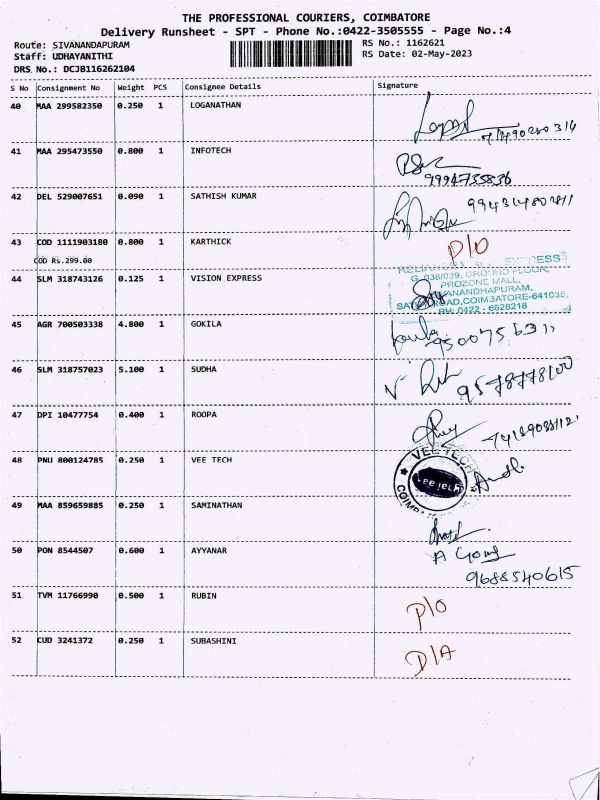 THE PROFESSIONAL COURIERS, COIMBATORE
Delivery Runsheet - SPT - Phone No.:0422-3505555 - Page No.:4
Route: SIVANANDAPURAM RS No.: 1162621
Staff: UDHAYANITHI RS Date: 02-May-2023
DRS No.: DCJB116262104
S No Consignment No Weight PCS Consignee Details Signature
40 MAA 299582350 0.250 1 LOGANATHAN
41 MAA 295473550 0.800 1 INFOTECH
9994735836
42 DEL 529007651 0.090 1 SATHISH KUMAR
43 COD 1111903180 0.800 1 KARTHICK P/O
COD Rs.299.00
44 SLM 318743126 0.125 1 VISION EXPRESS
EXPRESS
G-038/039, GROUND FLOOR,
PROZONE MALL,
SIVANANDHAPURAM,
ROAD, COIMBATORE-641035.
PH: 0422 - 6628218
45 AGR 700503338 4.800 1 GOKILA
46 SLM 318757023 5.100 1 SUDHA
9578778100
47 DPI 10477754 0.400 1 ROOPA
48 PNU 800124785 0.250 1 VEE TECH
VEE TECH
49 MAA 859659885 0.250 1 SAMINATHAN
50 PON 8544507 0.600 1 AYYANAR
9688540615
51 TVM 11766990 0.500 1 RUBIN P/O
52 CUD 3241372 0.250 1 SUBASHINI D/A